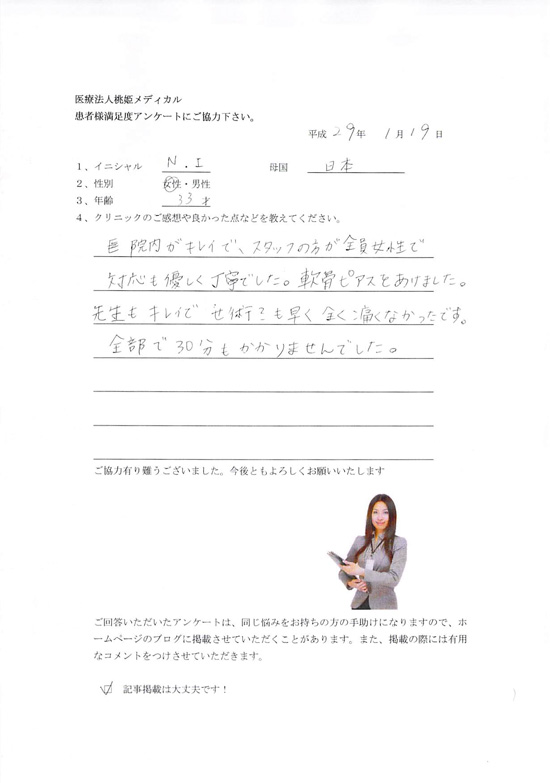 医療法人桃姫メディカル
患者様満足度アンケートにご協力下さい。
平成 29年 1月19日
1、イニシャル N.I 母国 日本
2、性別 女性・男性
3、年齢 33才
4、クリニックのご感想や良かった点などを教えてください。
医院内がキレイで、スタッフの方が全員女性で
対応も優しく丁寧でした。軟骨ピアスをあけました。
先生もキレイで せ術?も早く全く痛くなかったです。
全部で30分もかかりませんでした。
ご協力有り難うございました。今後ともよろしくお願いいたします
ご回答いただいたアンケートは、同じ悩みをお持ちの方の手助けになりますので、ホ
ームページのブログに掲載させていただくことがあります。また、掲載の際には有用
なコメントをつけさせていただきます。
記事掲載は大丈夫です!